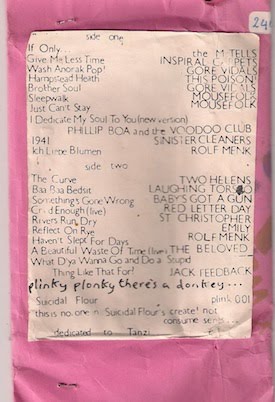 24
side one
If Only... the M.TELLS
Give Me Less Time INSPIRAL C PETS
Wash Anorak Pop! GORE VIDALS
Hampstead Heath THIS POISON!
Brother Soul GORE VIDALS
Sleepwalk MOUSEFOLK
Just Can't Stay MOUSEFOLK
I Dedicate My Soul To You (new version)
PHILLIP BOA and the VOODOO CLUB
1941 SINISTER CLEANERS
Ich Liebe Blumen ROLF MENK
side two
The Curve TWO HELENS
Baa Baa Bedsit LAUGHING TORSO
Something's Gone Wrong BABY'S GOT A GUN
Enough (live) RED LETTER DAY
Rivers Run Dry ST CHRISTOPHER
Reflect On Rye EMILY
Haven't Slept For Days ROLF MENK
A Beautiful Waste Of Time (live) THE BELOVED
What D'ya Wanna Go and Do a Stupid
Thing Like That For? JACK FEEDBACK
plinky plonky there's a donkey...
Suicidal Flour plink 001
this is no. one in Suicidal Flour's create! not
consume
dedicated to Tanzi